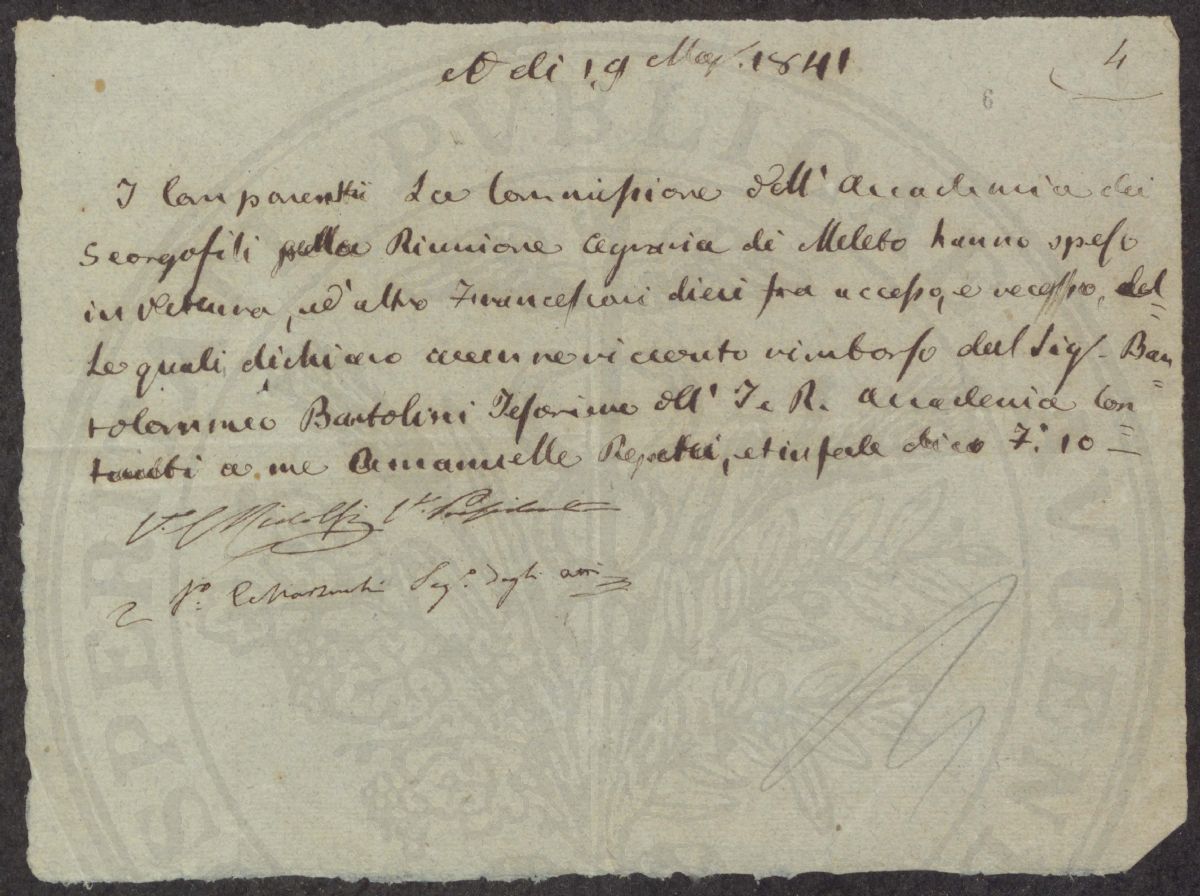 A di 19 Mag. 1841
4
6
I Componenti La Commissione dell' Accademia dei
Georgofili pella Riunione Agraria di Meleto hanno speso
in Vettura, ed altro Francesconi dieci fra accesso, e recesso, del=
Le quali, dichiaro averne ricevuto rimborso dal Sig. Bar=
tolommeo Bartolini Tesoriere dell' I. e R. Accademia Con=
tanti a me Emanuelle Repetti, et in fede dico F. 10 —
V. C Ridolfi V. Presidente
2 Vo. Seg. degli atti
PVBLICA